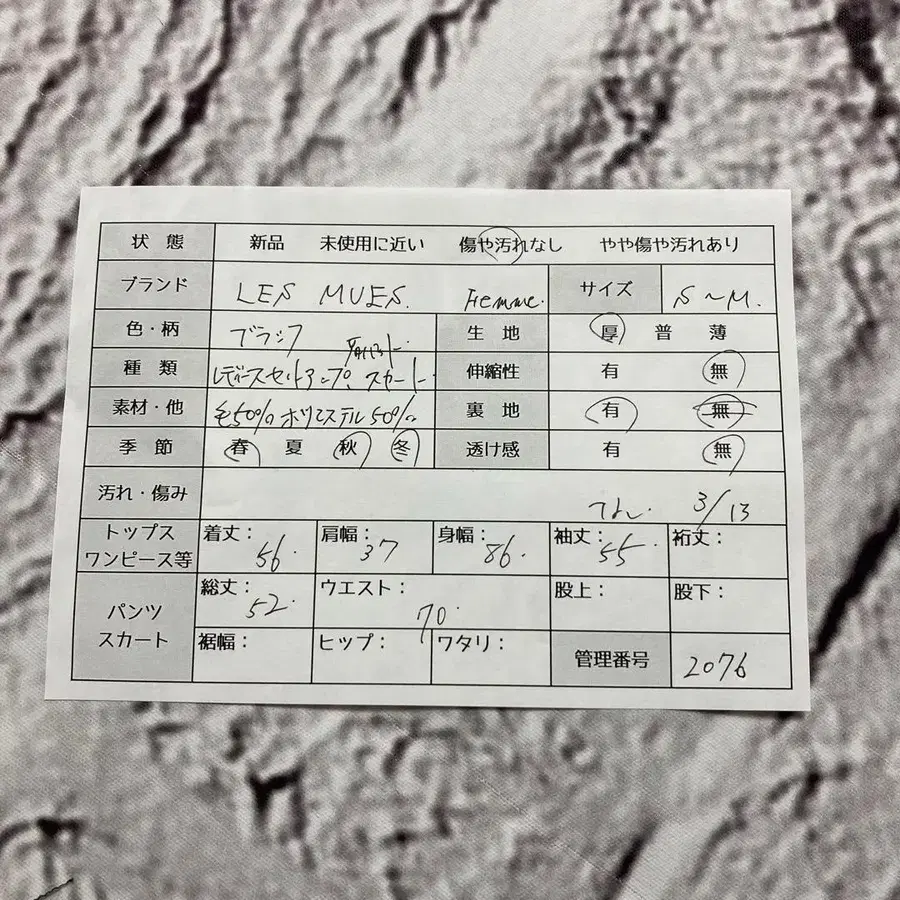 状態 新品 未使用に近い 傷や汚れなし やや傷や汚れあり
ブランド LES MUES. Femme. サイズ S～M.
色・柄 ブラック 生地 厚 普 薄
種類 レディースセットアップ. スカート 伸縮性 有 無
素材・他 毛50% ポリエステル50% 裏地 有 無
季節 春 夏 秋 冬 透け感 有 無
汚れ・傷み なし. 3/13
トップス ワンピース等 着丈: 56. 肩幅: 37 身幅: 86. 袖丈: 55. 裄丈:
パンツ スカート 総丈: 52. ウエスト: 70. 股上: 股下:
裾幅: ヒップ: ワタリ: 管理番号 2076